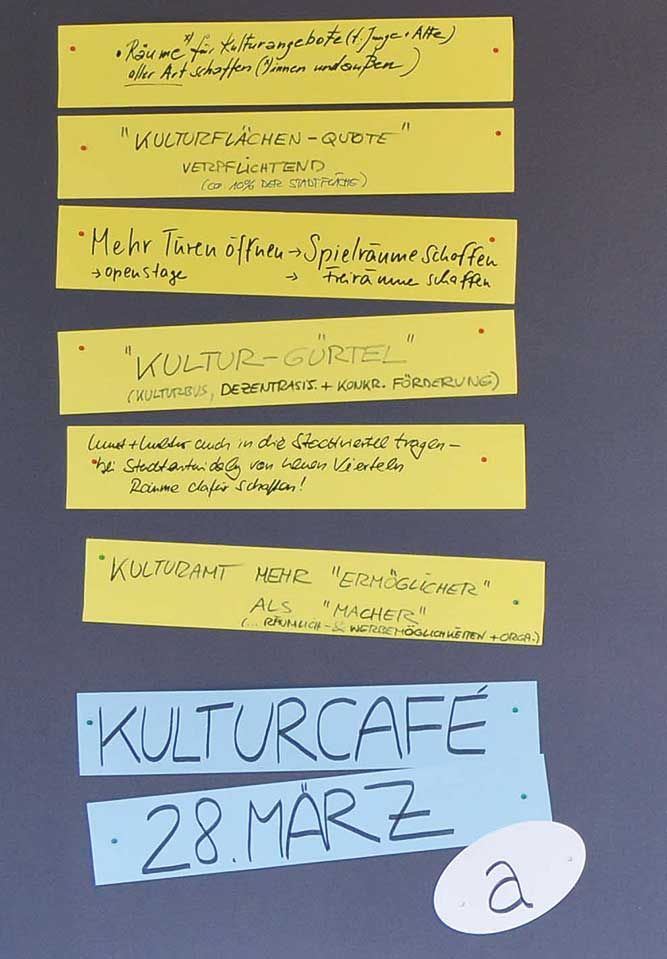 • Räume *) für Kulturangebote (f. Junge + Alte)
aller Art schaffen (*) innen und außen)
"KULTURFLÄCHEN-QUOTE"
VERPFLICHTEND
(ca 10% DER STADTFLÄCHE)
Mehr Türen öffnen → Spielräume schaffen
→ openstage → Freiräume schaffen
"KULTUR-GÜRTEL"
(KULTURBUS, DEZENTRALIS. + KONKR. FÖRDERUNG)
Kunst + Kultur auch in die Stadtviertel tragen –
bei Stadtentwicklg von neuen Vierteln
Räume dafür schaffen!
KULTURAMT MEHR "ERMÖGLICHER"
ALS "MACHER"
(... RÄUMLICH- & WERBEMÖGLICHKEITEN + ORGA.)
KULTURCAFÉ
28. MÄRZ
a